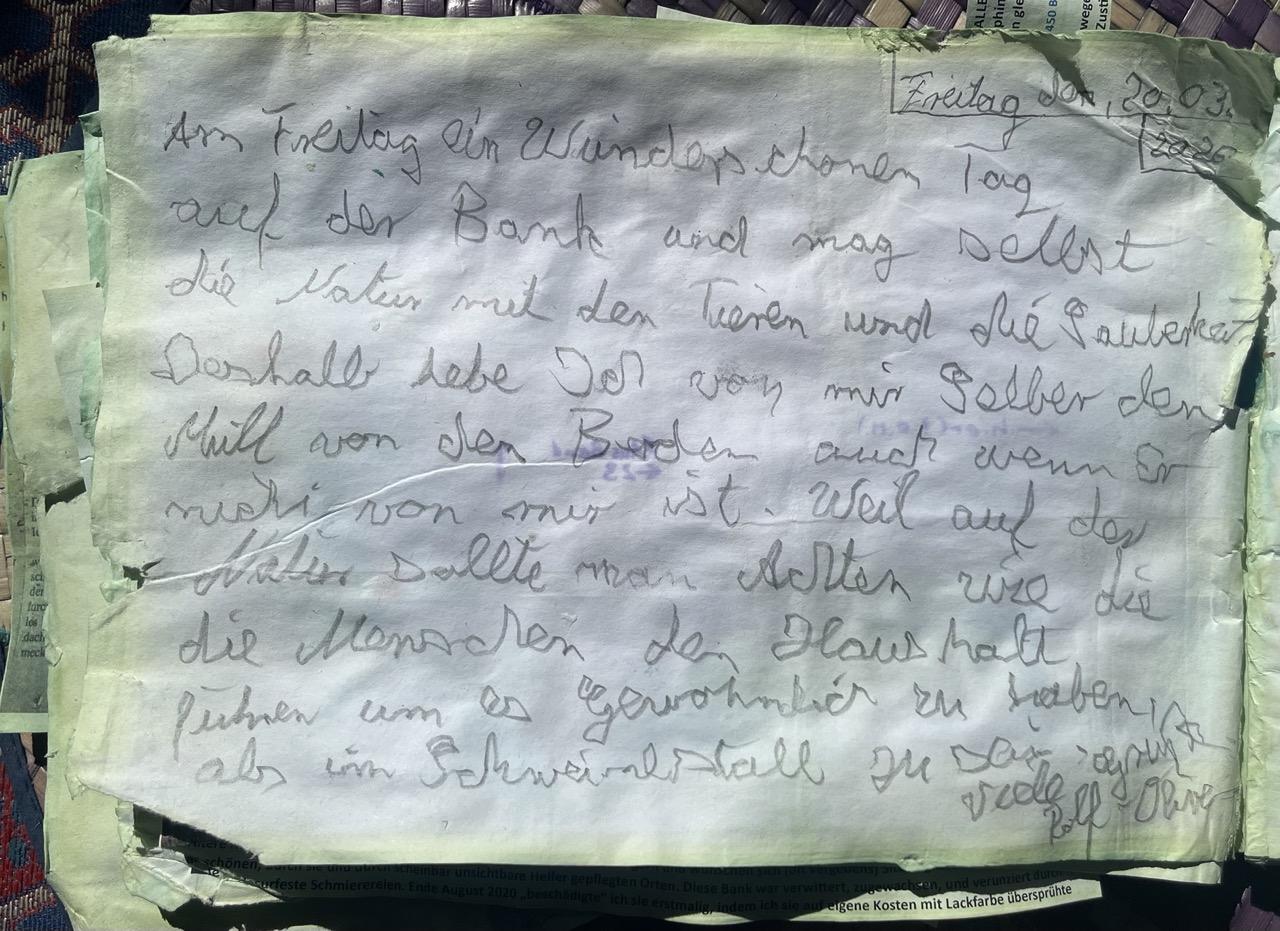 Freitag den, 20.03.
2026
Am Freitag ein Wunderschönen Tag
auf der Bank und mag selbst
die Natur mit den Tieren und die Sauberkeit
Deshalb hebe Ich von mir Selber den
Müll von den Boden auch wenn Er
nicht von mir ist. Weil auf der
Natur sollte man Achten wie die
die Menschen den Haushalt
führen um es gewöhnlich zu haben,
als im Schweinestall zu sein
viele
Rolf-Oliver
schönen, durch sie und durch scheinbar unsichtbare Helfer gepflegten Orten. Diese Bank war verwittert, zugewachsen, und verunziert durch
surfeste Schmierereien. Ende August 2020 „beschädigte" ich sie erstmalig, indem ich sie auf eigene Kosten mit Lackfarbe übersprühte